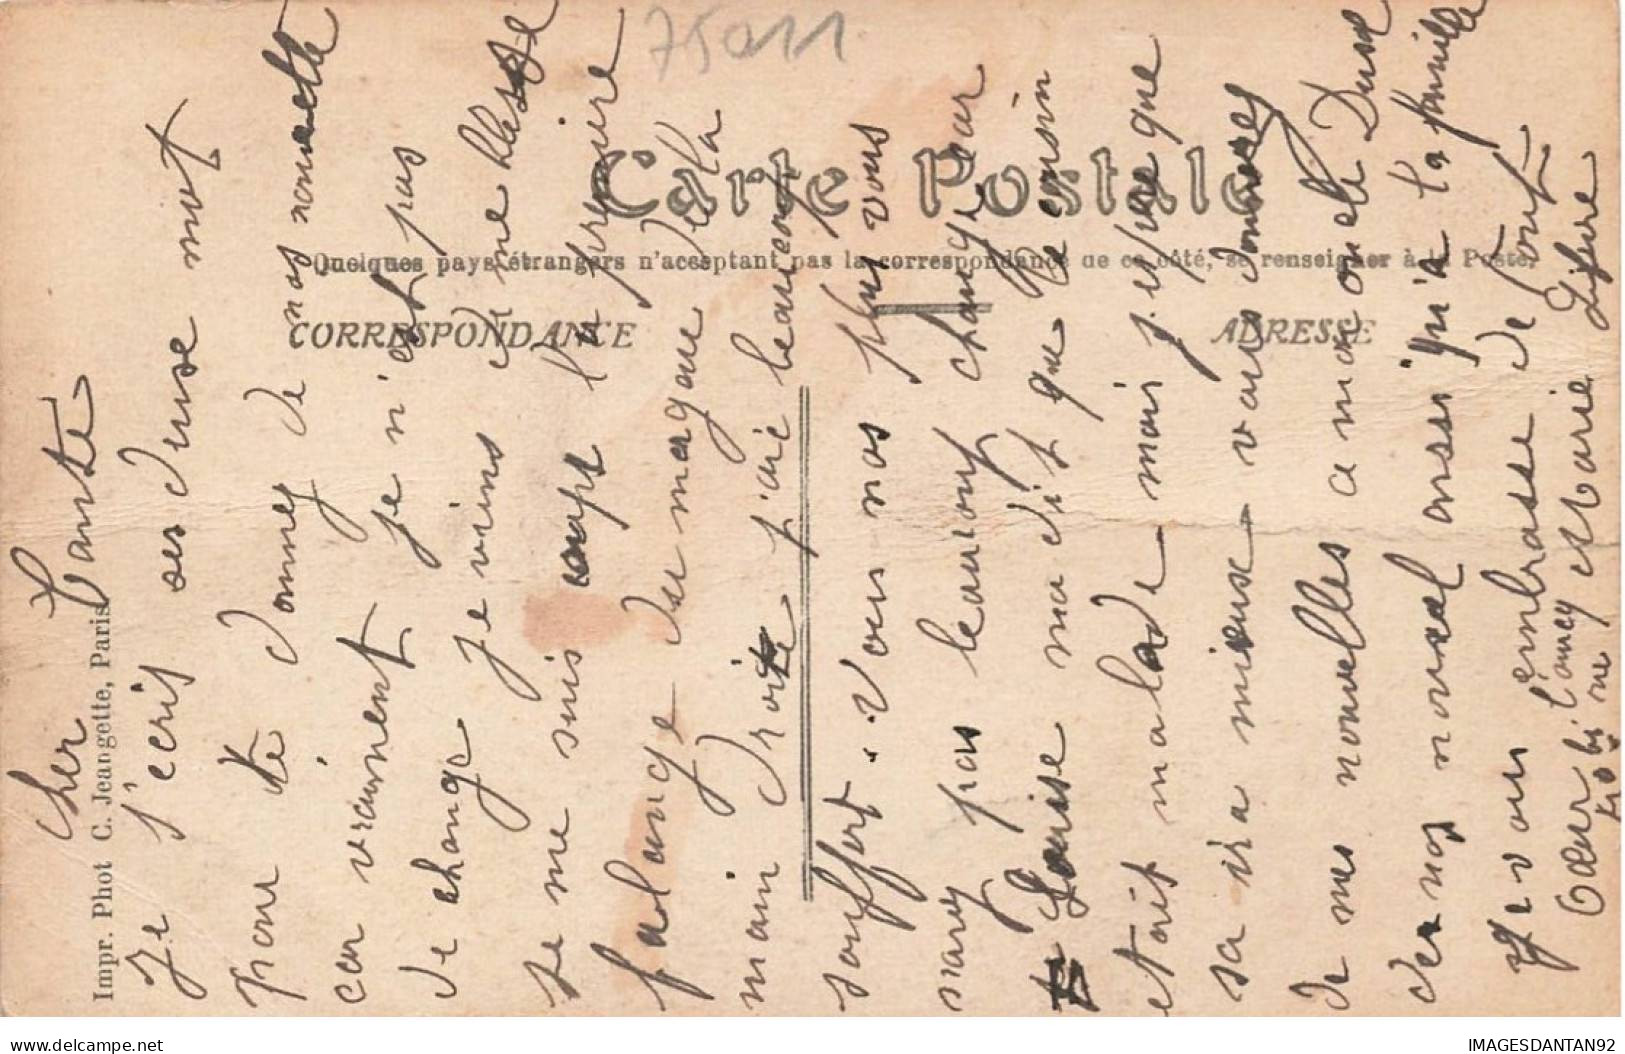 75011
Carte Postale
Quelques pays étrangers n'acceptant pas la correspondance de ce côté, se renseigner à la Poste.
CORRESPONDANCE
ADRESSE
Impr. Phot C. Jeangette, Paris
Cher Tante
Je t'ecris ses dunse mot
pour te donney de nos nouvelle
car vraiment je n'est pas
de change je viens de me blesse
je me suis coups la premire
falange du magne de la
main droite j'aie beaucoup
souffert. Vous nos plus vous
mary pas beaucoup change car
Louise ma dit que le cousin
etait malade mais j'espere que
sa ira mieuse vous donnerey
de mes nouvelles a mon oncle Dusse
des nos nouvel ansi qu'a la famille
Je vous embrasse de tout
Cœur l'amey Marie Lifevre
IMAGESDANTAN92
delcampe.net